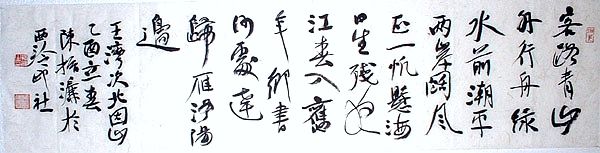 客路青山
外行舟綠
水前潮平
兩岸闊風
正一帆懸海
日生残夜
江春入舊
年鄉書
何處達
歸雁洛陽
邊
王灣次北固山
乙酉立春
陳振濂於
西泠印社